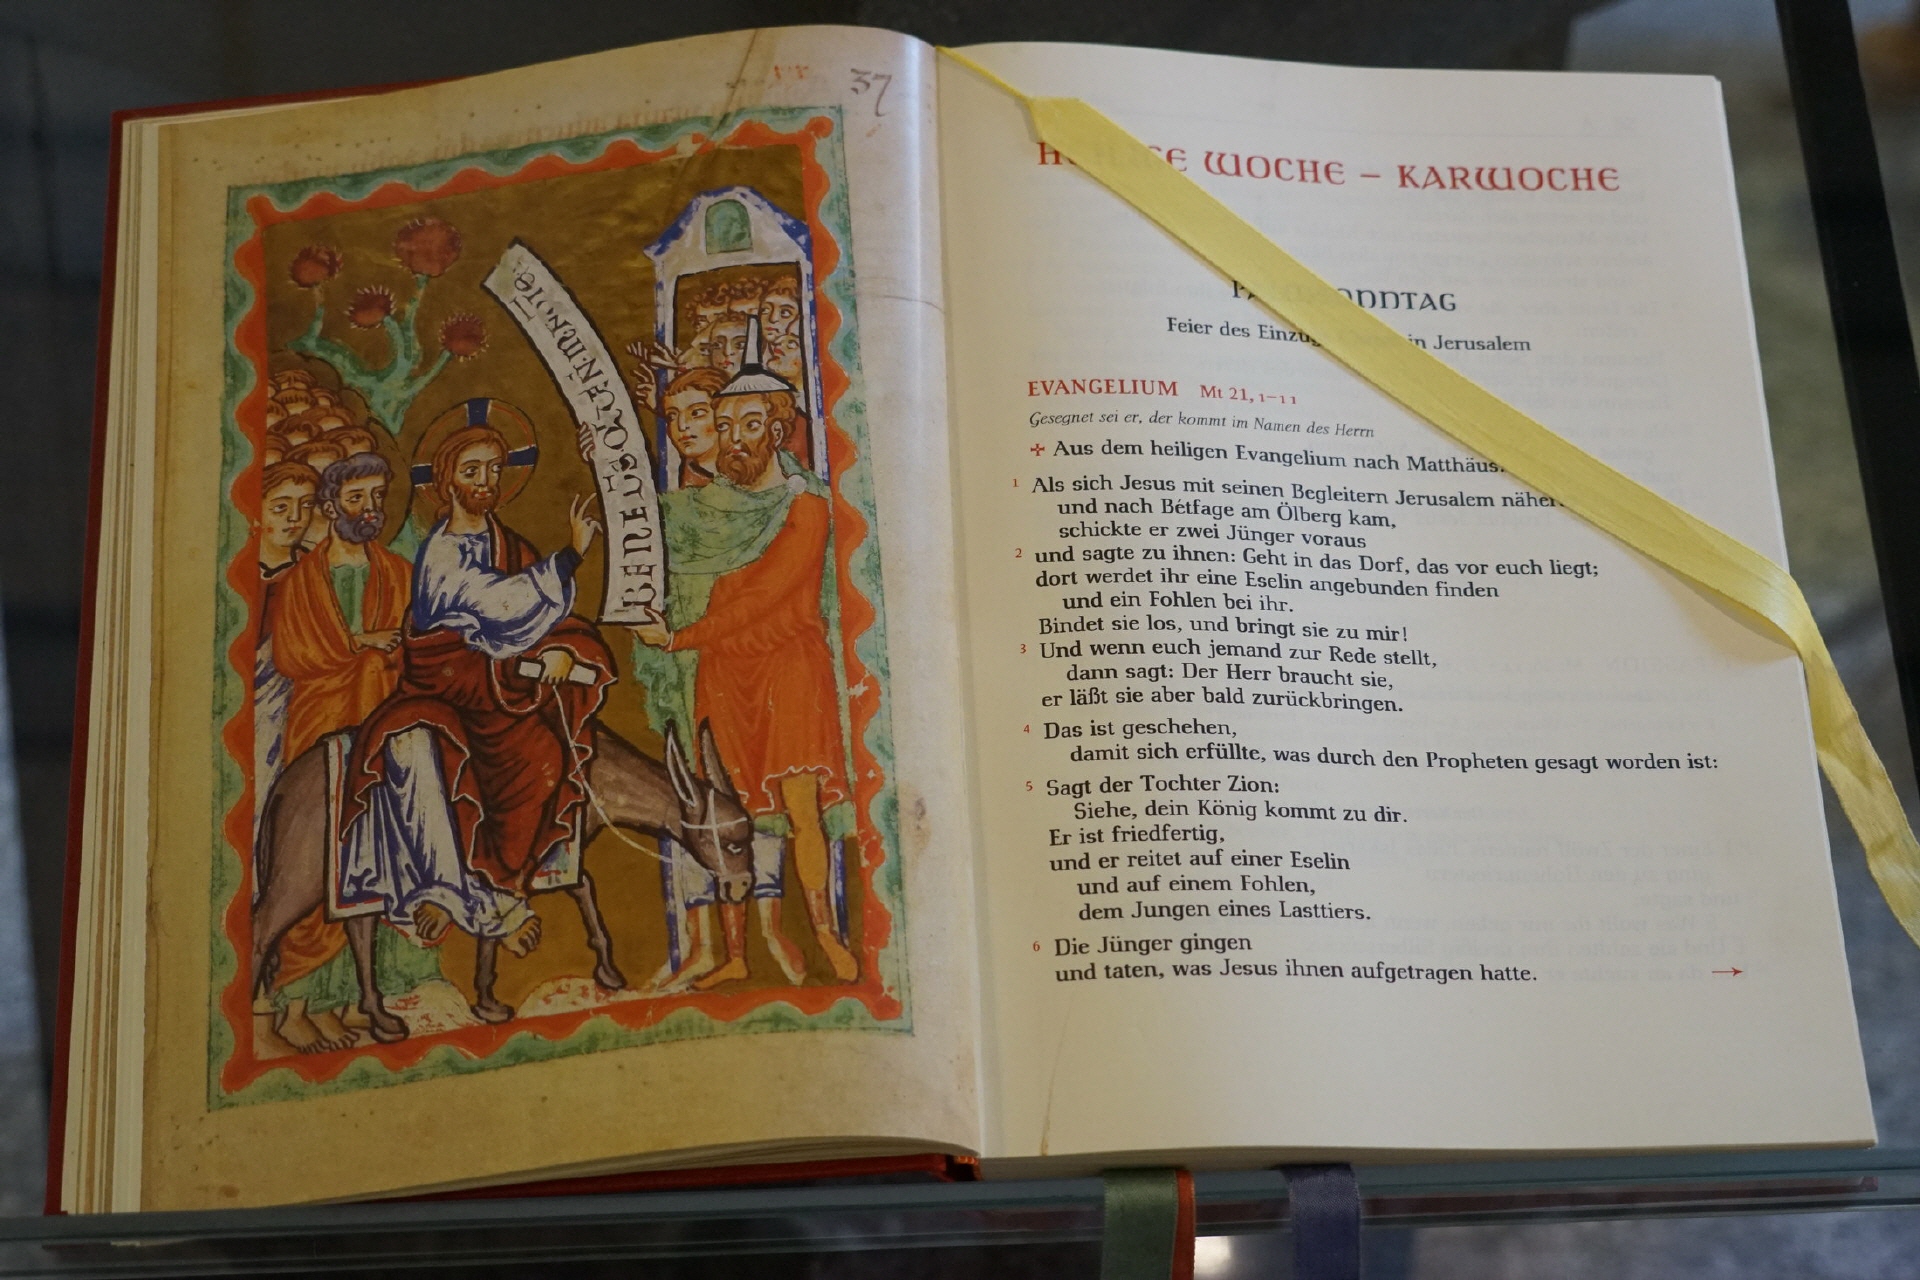 37
BENEDC QVENIIINNOTE
H E WOCHE – KARWOCHE
ONNTAG
Feier des in Jerusalem
EVANGELIUM Mt 21, 1–11
Gesegnet sei er, der kommt im Namen des Herrn
✢ Aus dem heiligen Evangelium nach Matthäus.
1 Als sich Jesus mit seinen Begleitern Jerusalem
und nach Bétfage am Ölberg kam,
schickte er zwei Jünger voraus
2 und sagte zu ihnen: Geht in das Dorf, das vor euch liegt;
dort werdet ihr eine Eselin angebunden finden
und ein Fohlen bei ihr.
Bindet sie los, und bringt sie zu mir!
3 Und wenn euch jemand zur Rede stellt,
dann sagt: Der Herr braucht sie,
er läßt sie aber bald zurückbringen.
4 Das ist geschehen,
damit sich erfüllte, was durch den Propheten gesagt worden ist:
5 Sagt der Tochter Zion:
Siehe, dein König kommt zu dir.
Er ist friedfertig,
und er reitet auf einer Eselin
und auf einem Fohlen,
dem Jungen eines Lasttiers.
6 Die Jünger gingen
und taten, was Jesus ihnen aufgetragen hatte. →